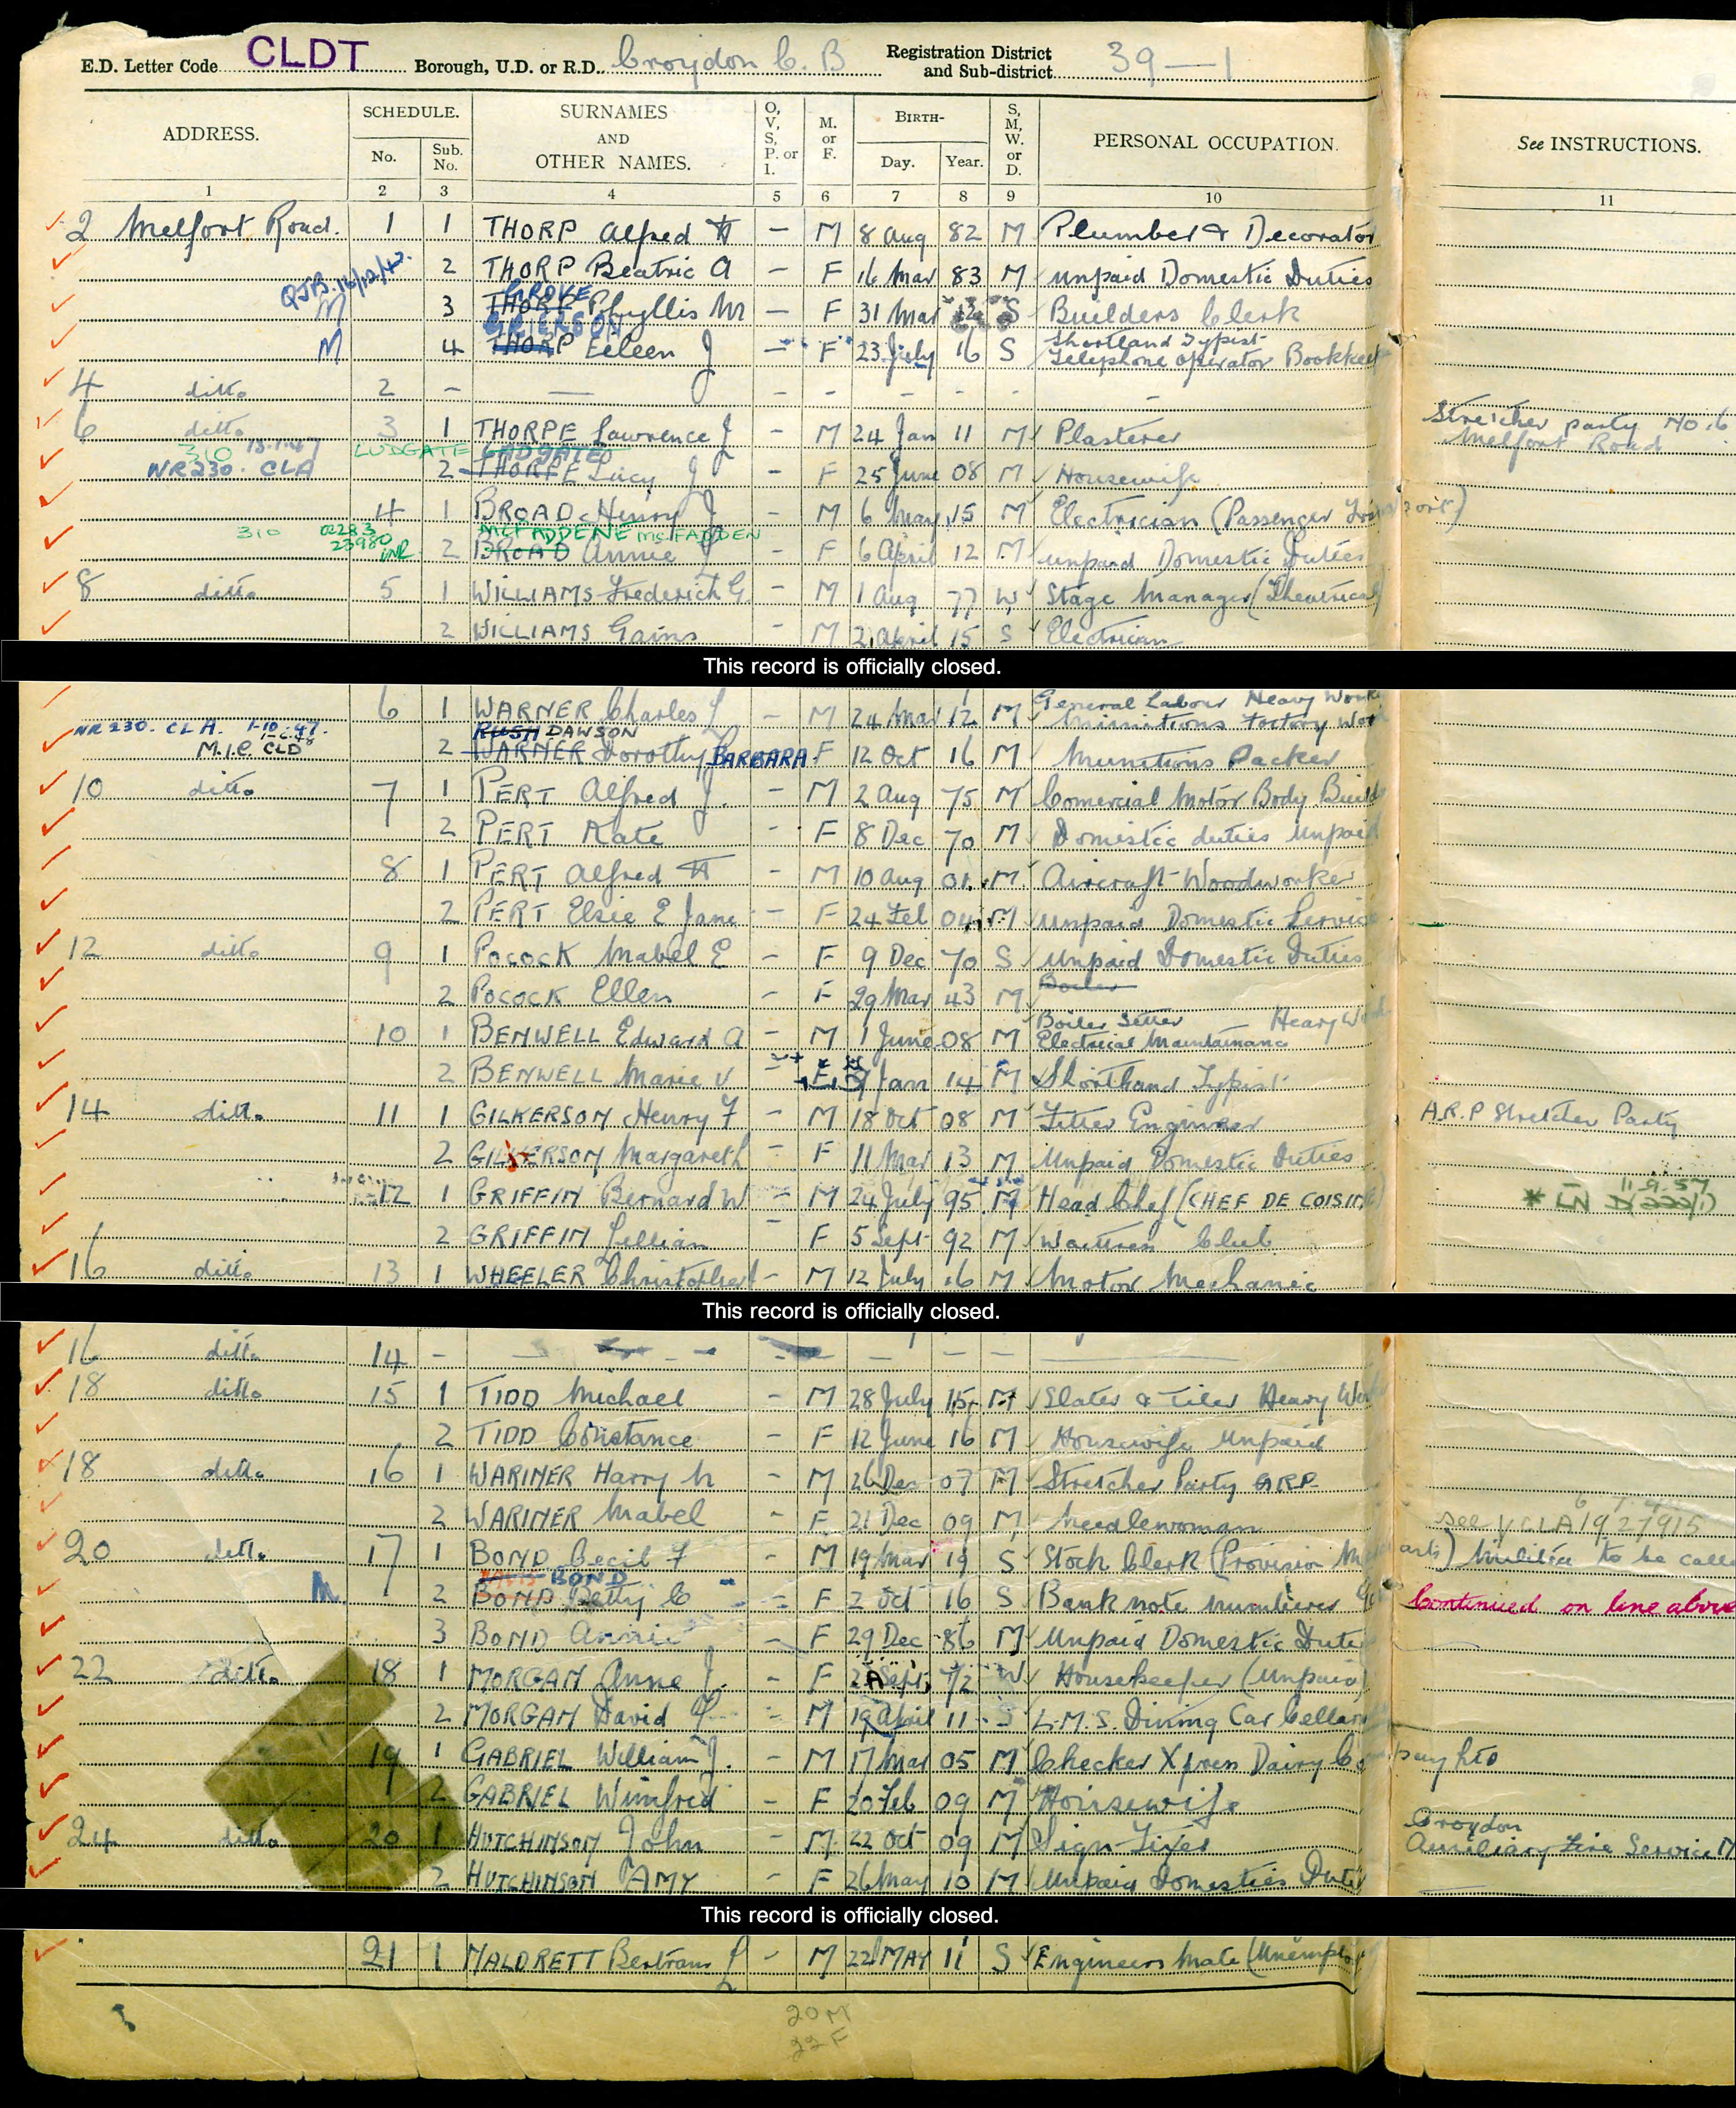 E.D. Letter Code CLDT Borough, U.D. or R.D. Croydon C. B Registration District and Sub-district 39—1
ADDRESS. SCHEDULE. No. Sub. No. SURNAMES AND OTHER NAMES. O, V, S, P. or I. M. or F. BIRTH- Day. Year. S, M, W. or D. PERSONAL OCCUPATION. See INSTRUCTIONS.
1 2 3 4 5 6 7 8 9 10 11
2 Melfort Road. 1 1 THORP Alfred H - M 8 Aug 82 M Plumber & Decorator
2 THORP Beatric A - F 16 Mar 83 M unpaid Domestic Duties
GROVE
M 3 THORP Phyllis M - F 31 Mar 12 S Builders Clerk
GRIERSON
M 4 THORP Eileen J - F 23 July 16 S Shortland Typist Telephone operator Bookkeep
4 ditto 2 - — - - - - - -
6 ditto 3 1 THORPE Lawrence J - M 24 Jan 11 M Plasterer Stretcher party No. 6 Melfort Road
310 13.1.47 LUDGATE LADGATE
NR 230. CLA 2 THORPE Lucy J - F 25 June 08 M Housewife
4 1 BROAD Henry J - M 6 May 15 M Electrician (Passenger Transport)
310 MCFADDENE McFADDEN
2 BROAD Annie J - F 6 April 12 M unpaid Domestic Duties
8 ditto 5 1 WILLIAMS Frederich G - M 1 Aug 77 W Stage Manager (Theatrical)
2 WILLIAMS Gains - M 2 April 15 S Electrician
This record is officially closed.
6 1 WARNER Charles L - M 24 Mar 12 M General Labour Heavy Work Munitions Factory Work
NR 230. CLA. 1-10-47. RUSH DAWSON
M.I.C. CLD 2 WARNER Dorothy BARBARA F 12 Oct 16 M Munitions Packer
10 ditto 7 1 PERT Alfred J. - M 2 Aug 75 M Comercial Motor Body Build
2 PERT Kate - F 8 Dec 70 M Domestic duties Unpaid
8 1 PERT Alfred H - M 10 Aug 01 M Aircraft Woodworker
2 PERT Elsie E Jane - F 24 Feb 04 M unpaid Domestic Service
12 ditto 9 1 POCOCK Mabel E - F 9 Dec 70 S Unpaid Domestic Duties
2 POCOCK Ellen - F 29 Mar 43 M Boiler
10 1 BENWELL Edward A - M 1 June 08 M Boiler Setter Heavy Work Electrical Maintainance
2 BENWELL Marie V - F Jan 14 M Shorthand Typist
14 ditto 11 1 GILKERSON Henry F - M 18 Oct 08 M Fitter Engineer A.R.P Stretcher Party
2 GILKERSON Margaret - F 11 Mar 13 M Unpaid Domestic Duties
12 1 GRIFFIN Bernard W - M 24 July 95 M Head Chef (CHEF DE COISINE)
2 GRIFFIN Lillian - F 5 Sept 92 M Waitress Club
16 ditto 13 1 WHEELER Christopher - M 12 July 16 M Motor Mechanic
This record is officially closed.
16 ditto 14 - - - - - - -
18 ditto 15 1 TIDD Michael - M 28 July 15 M Slater & Tiler Heavy Work
2 TIDD Constance - F 12 June 16 M Housewife Unpaid
18 ditto 16 1 WARINER Harry M - M 26 Dec 07 M Stretcher Party ARP
2 WARINER Mabel - F 21 Dec 09 M Needlewoman
See VCLA 19 27915
20 ditto 17 1 BOND Cecil F - M 19 Mar 19 S Stock Clerk (Provision Militia to be calle
BOND
M 2 BOND Betty C - F 2 Oct 16 S Bank note numberer Continued on line above
3 BOND Annie - F 29 Dec 86 M Unpaid Domestic Dute
22 ditto 18 1 MORGAN Anne J. - F 2 Sept 72 W Housekeeper (Unpaid)
2 MORGAN David - M 19 April 11 S L.M.S. Dining Car Cellar
19 1 GABRIEL William J. - M 17 Mar 05 M Checker Xpress Dairy Company Lto
2 GABRIEL Winifred - F 20 Feb 09 M Housewife
24 ditto 20 1 HUTCHINSON John - M 22 Oct 09 M Sign Fixer Croydon Auxiliary Fire Service
2 HUTCHINSON AMY - F 26 May 10 M Unpaid Domestics Duti
This record is officially closed.
21 1 MALDRETT Bertram L - M 22 MAY 11 S Engineers Mate (Unemploy
20 M
22 F